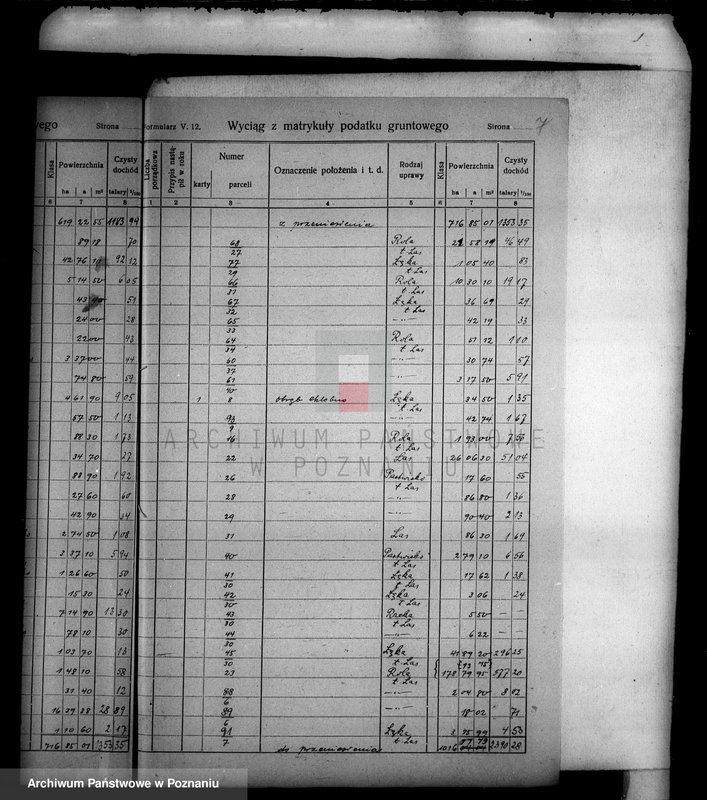 wego Strona
Klasa Powierzchnia Czysty dochód
ha a m² talary 1/100
6 7 8
619 22 55 1183 94
89 18 70
42 76 10 92 12
5 14 50 6 05
43 40 51
24 00 28
22 00 43
3 37 00 44
74 80 59
4 61 90 9 05
57 50 1 13
88 30 1 73
34 70 27
88 90 1 92
27 60 60
42 90 34
2 74 50 1 08
3 37 10 5 94
1 26 60 50
15 30 24
7 14 90 13 30
78 10 30
1 03 70 13
1 48 10 58
31 40 12
16 39 88 28 89
1 10 60 2 17
716 85 01 1353 35
Formularz V. 12. Wyciąg z matrykuły podatku gruntowego Strona 7
Liczba porządkowa Przypis nastąpił w roku Numer Oznaczenie położenia i t. d. Rodzaj uprawy Klasa Powierzchnia Czysty dochód
karty parceli ha a m² talary 1/100
1 2 3 4 5 6 7 8
z przeniesienia 716 85 01 1353 35
68/27 Rola t. Las 21 58 19 46 49
77/29 Łąka t. Las 1 05 40 83
66/31 Rola t. Las 10 30 10 19 17
67/32 Łąka t. Las 36 69 29
65/33 —"— 42 19 33
64/34 Rola t. Las 51 12 1 10
60/37 —"— 30 74 57
61/40 —"— 3 17 50 5 91
1 8 obręb Łąka t. Las 34 50 1 35
93/9 —"— 42 74 1 67
16 Rola t. Las 1 93 00 7 56
22 Las 26 06 30 51 04
26 Pastwisko t. Las 17 60 55
28 —"— 86 80 1 36
29 —"— 90 40 2 13
31 Las 86 30 1 69
40 Pastwisko t. Las 2 79 10 6 56
41/30 Łąka t. Las 17 62 1 38
42/30 Łąka t. Las 3 06 24
43/30 Rzeka t. Las 5 50 — —
44/30 —"— 6 22 — —
45/30 Łąka t. Las 41 89 20 296 25
23 Rola t. Las 178 79 95 577 20
88/6 —"— 2 04 80 8 02
89/6 —"— 18 02 71
91/7 Łąka t. Las 3 75 99 4 53
do przeniesienia 1016 2390 28
ARCHIWUM PAŃSTWOWE
W POZNANIU
Archiwum Państwowe w Poznaniu